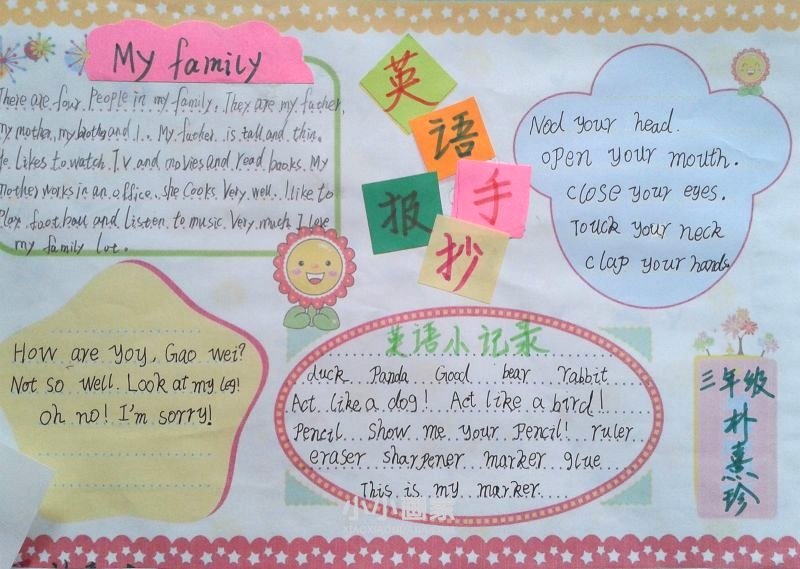 My family
There are four People in my family. They are my father,
my mother, my brother and I. My father is tall and thin.
He Likes to watch TV and movies and read books. My
mother works in an office. she Cooks Very well. I like to
Play football and Listen to music Very much I love
my family lot.
英
语
手
抄
报
Nod your head.
open your mouth.
close your eyes.
Touck your neck
clap your hands.
How are you, Gao wei?
Not so well. Look at my leg!
oh no! I'm sorry!
英语小记录
duck Panda Good bear rabbit
Act like a dog! Act like a bird!
Pencil Show me your Pencil! ruler
eraser sharpener marker glue
This is my marker.
三年级
朴熹珍
小小画家